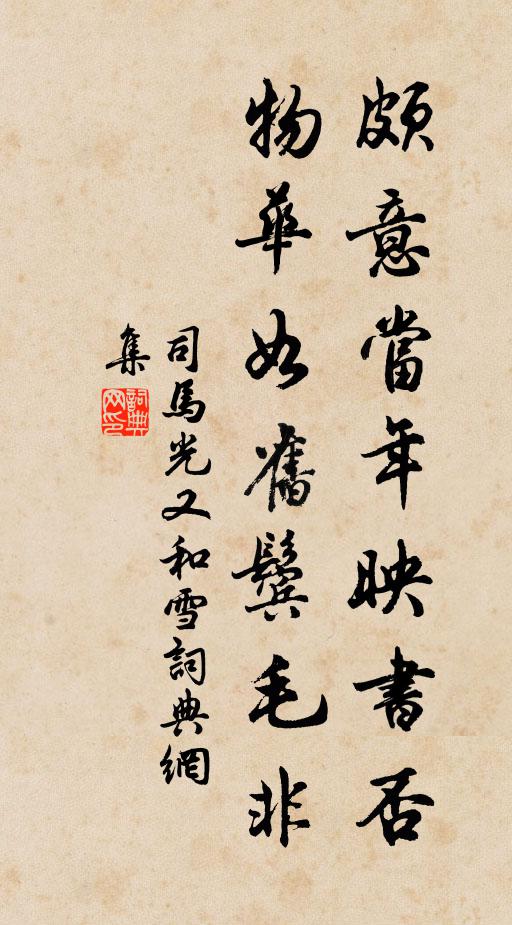 頗意當年映書否
物華如舊鬢毛非
司馬光又和雪詞典網
集
詞典网印